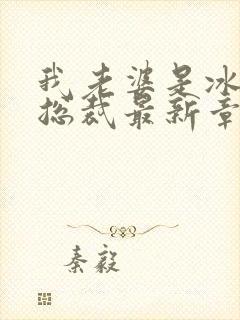 我老婆是冰
总裁最新章
秦毅